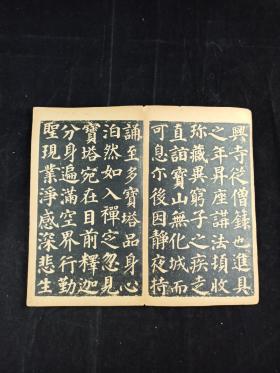 興寺從僧籙也進具
之年昇座講法頓收
珎藏異窮子之疾走
直詣寶山無化城而
可息尒後因靜夜持
誦至多寶塔品身心
泊然如入禪定忽見
寶塔宛在目前釋迦
分身遍滿空界行勤
聖現業淨感深悲生